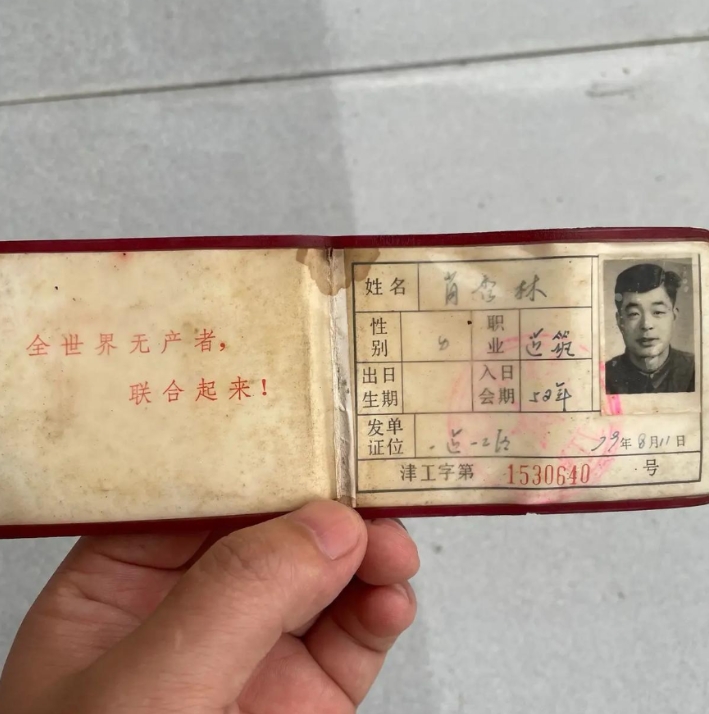 全世界无产者，
联合起来！
姓名 肖杏林
性别 职业 建筑
出生日期 入会日期 52年
发证单位 79年8月11日
津工字第 1530640 号